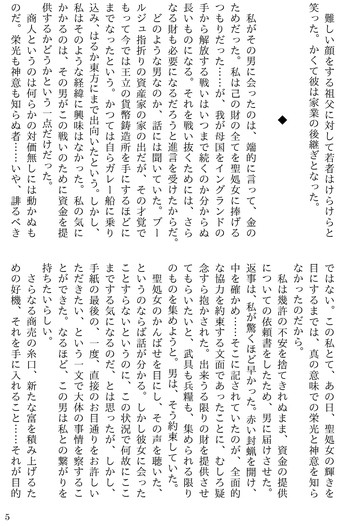 難しい顔をする祖父に対して若者はけらけらと
笑った。かくて彼は家業の後継ぎとなった。
◆
私がその男に会ったのは、端的に言って、金の
ためだった。私は己の財の全てを聖処女に捧げる
つもりだった……が、我が母国をイングランドの
手から解放する戦いはいつまで続くのか分からぬ
長いものになる。それを戦い抜くためには、さら
なる財も必要になるだろうと進言を受けたからだ。
どのような男なのか、話には聞いていた。ブー
ルジュ指折りの資産家の家の出だが、その才覚で
もって今では王立の貨幣鋳造所を手にするほどに
までなったという。かつては自らガレー船に乗り
込み、はるか東方にまで出向いたという。しかし、
私はそのような経緯に興味はなかった。私の気に
かかるのは、その男がこの戦いのために資金を提
供するかどうかという一点だけだった。
商人というのは何らかの対価無しには動かぬも
のだ。栄光も神意も知らぬ者……いや、誹るべき
ではない。この私とて、あの日、聖処女の輝きを
目にするまでは、真の意味での栄光と神意を知ら
なかったのだから。
私は幾許の不安を捨てきれぬまま、資金の提供
についての依頼書をしたため、男に届けさせた。
返事は、私が驚くほど早かった。赤い封蝋を開け、
中を確かめ……そこに記されていたのが、全面的
な協力を約束する文面であったことに、むしろ疑
念すら抱かされた。出来うる限りの財を提供させ
てもらいたいと、武具も兵糧も、集められる限り
のものを集めようと。男は、そう約束していた。
聖処女のかんばせを目にし、その声を聴いた、
というのならば話が分かる。しかし彼女に会った
ことすらないというのに、この状況で何故にここ
までする気になるのだ、とは思ったが、しかし、
手紙の最後の、一度、直接のお目通りをお許しい
ただきたい、という一文で大体の事情を察するこ
とができた。なるほど、この男は私との繋がりを
持ちたいらしい。
さらなる商売の糸口、新たな富を積み上げるた
めの好機、それを手に入れること……それが目的
5